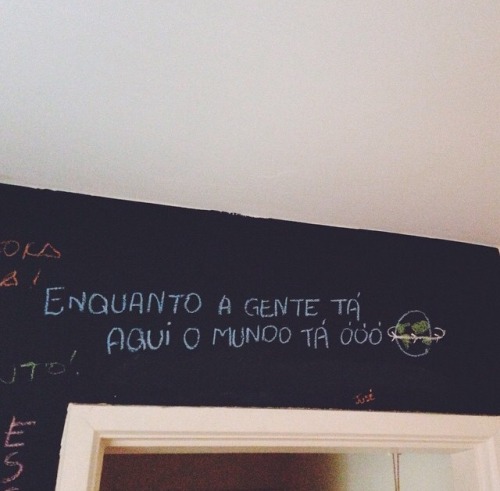 ENQUANTO A GENTE TÁ
AQUI O MUNDO TÁ ÓÓÓ
José